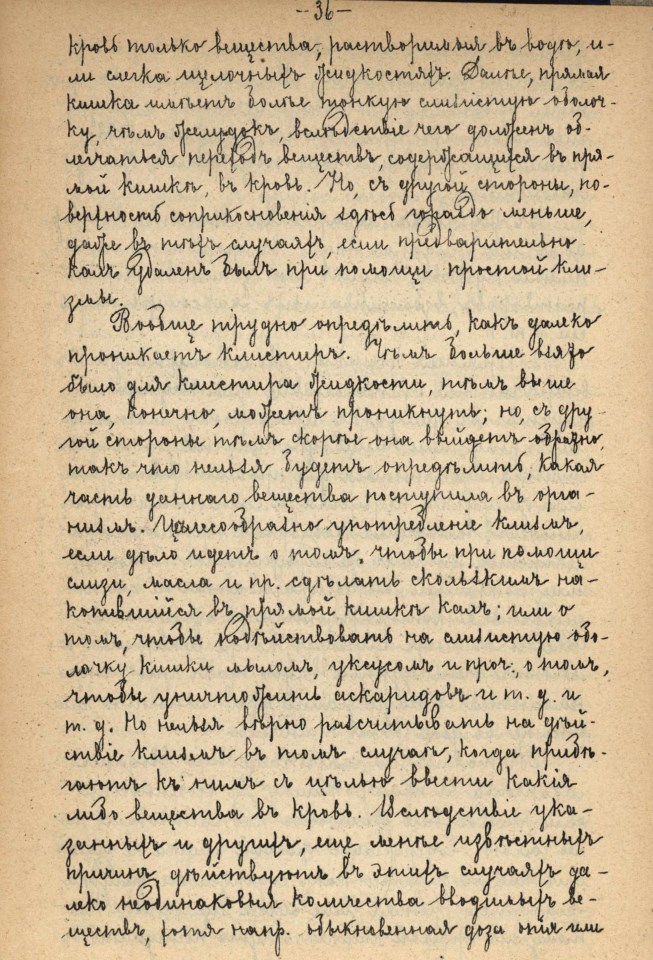 — 36 —
кровь только вещества, растворимыя въ водѣ, и-
ли слегка щелочныхъ жидкостяхъ. Далѣе, прямая
кишка имѣетъ болѣе тонкую слизистую оболоч-
ку, чѣмъ желудокъ, вслѣдствіе чего долженъ об-
легчаться переходъ веществъ, содержащихся въ пря-
мой кишкѣ, въ кровь. Но, съ другой стороны, по-
верхность соприкосновенія здѣсь гораздо меньше,
даже въ тѣхъ случаяхъ, если предварительно
калъ удаленъ былъ при помощи простой кли-
змы.
Вообще трудно опредѣлить, какъ далеко
проникаетъ клистиръ. Чѣмъ больше взято
было для клистира жидкости, тѣмъ выше
она, конечно, можетъ проникнуть; но, съ дру-
гой стороны тѣмъ скорѣе она выйдетъ обратно,
такъ что нельзя будетъ опредѣлить, какая
часть даннаго вещества поступила въ орга-
низмъ. Цѣлесообразно употребленіе клизмъ,
если дѣло идетъ о томъ, чтобы при помощи
слизи, масла и пр. сдѣлать скользкимъ на-
копившійся въ прямой кишкѣ калъ; или о
томъ, чтобы подѣйствовать на слизистую обо-
лочку кишки мыломъ, уксусомъ и проч., о томъ,
чтобы уничтожить аскаридовъ и т. д. и
т. д. Но нельзя вѣрно разсчитывать на дѣй-
ствіе клизмъ въ томъ случаѣ, когда прибѣ-
гаютъ къ нимъ съ цѣлью ввести какія
либо вещества въ кровь. Вслѣдствіе ука-
занныхъ и другихъ, еще менѣе извѣстныхъ
причинъ, дѣйствуютъ въ этихъ случаяхъ да-
леко неодинаковыя количества вводимыхъ ве-
ществъ, хотя напр. обыкновенная доза опія или